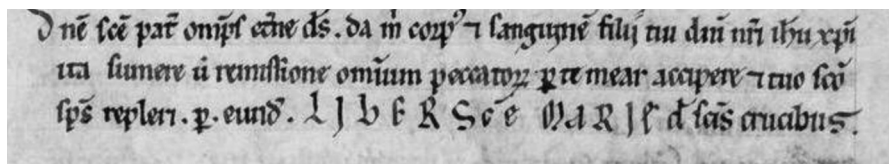 Dn̄e sc̄e pat̄ om̄ps et̄ne d̄s . da m̄ corp᷒ ⁊ sanguinē filij tui dn̄i nr̄i ih̄u xp̄i
ita sumere ū remissione om̄ium peccatoꝝ ꝑ te mear accipere ⁊ tuo sc̄o
sp̄s repleri . ꝑ . eund̄ . LIBER Sc̄e MARIE d̄ scīs crucibus .